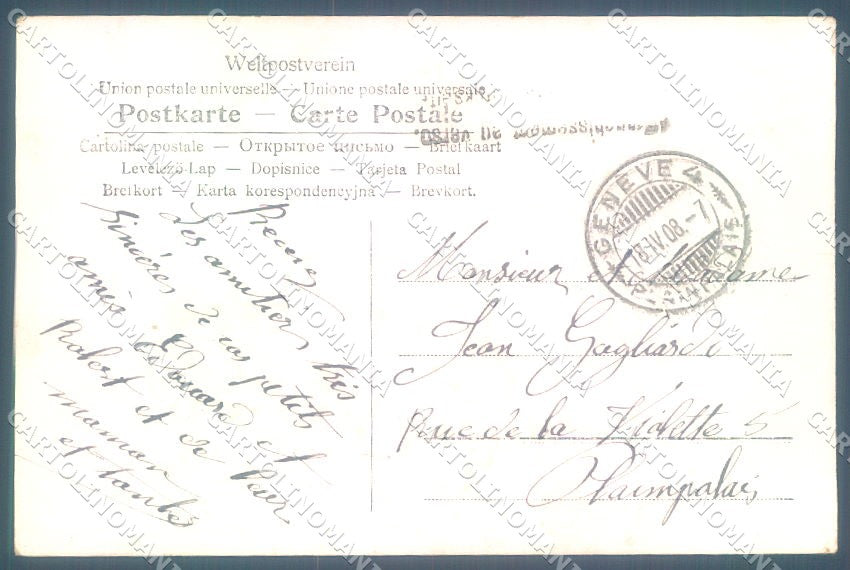 Weltpostverein
Union postale universelle — Unione postale universale
Postkarte — Carte Postale
Cartolina postale — Открытое письмо — Briefkaart
Levelező-Lap — Dopisnice — Tarjeta Postal
Brefkort — Karta korespondencyjna — Brevkort.
au verso.
GENÈVE 4
IV.08.-7
PLAINPALAIS
Recevez
Les amitiés très
sincères de vos petits
amis Edouard et
Robert et de leur
maman
et tantes
Monsieur et Madame
Jean Gagliardi
Rue de la Violette 5
Plainpalais
CARTOLINOMANIA